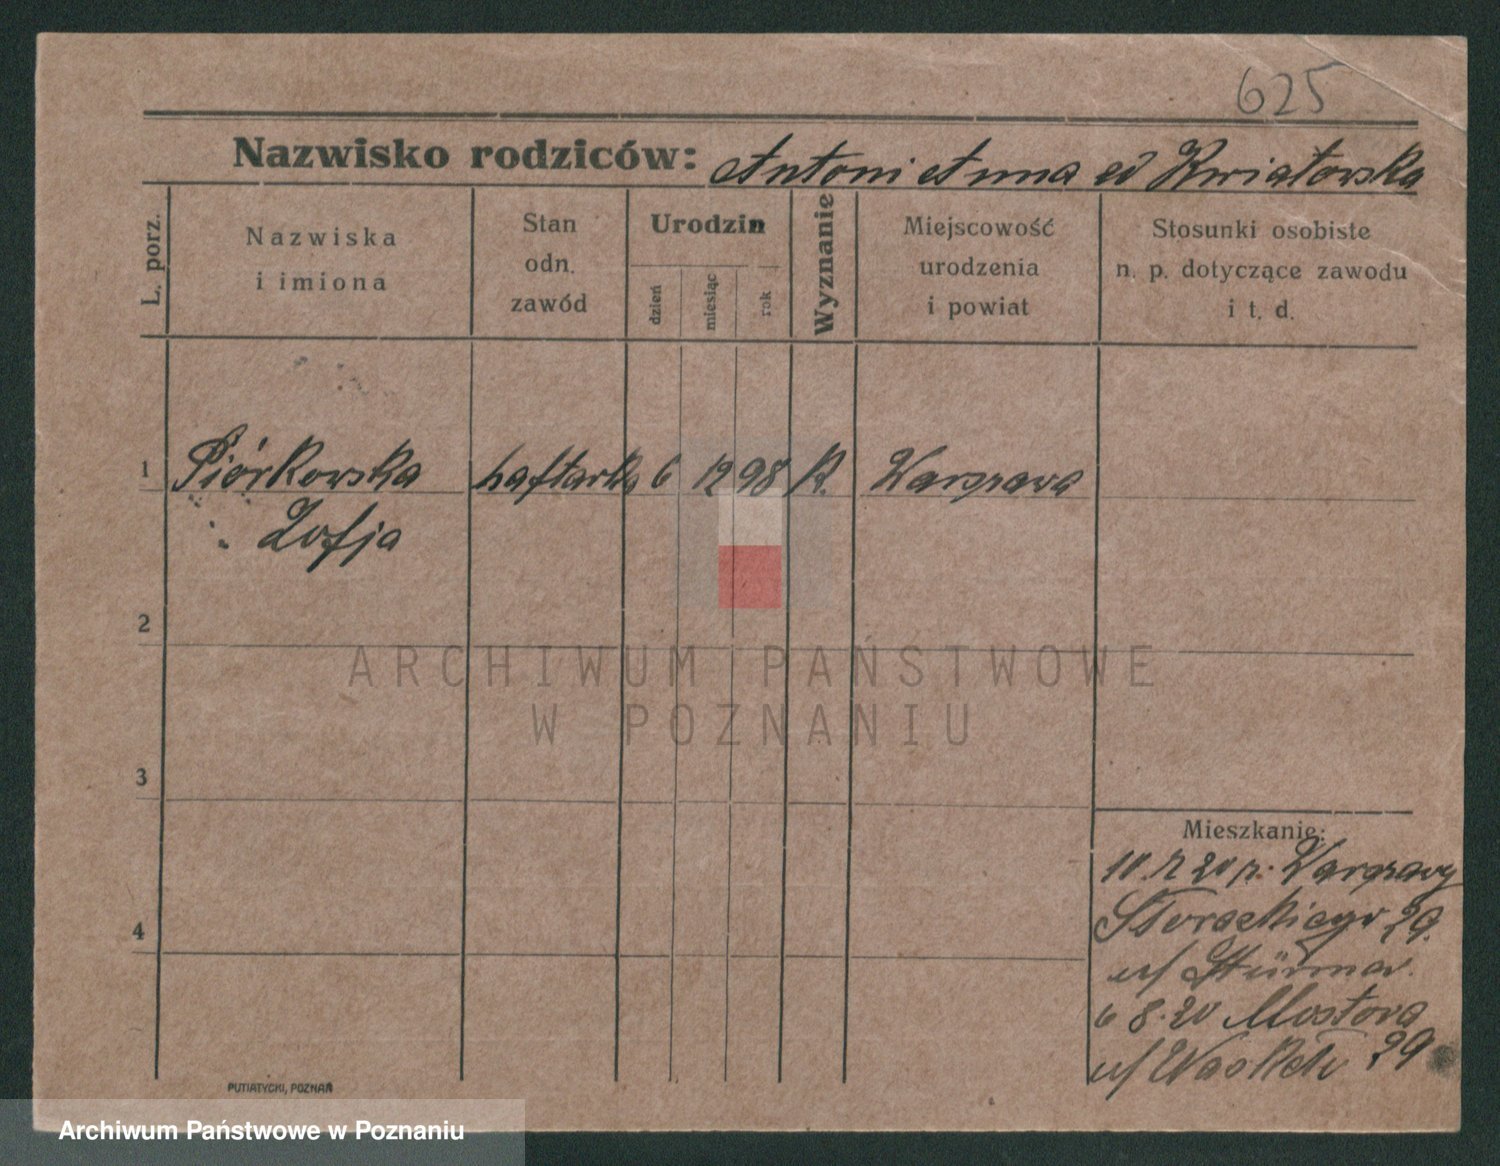 625
Nazwisko rodziców: Antoni Anna Kwiatowska
L. porz.
Nazwiska
i imiona
Stan
odn.
zawód
Urodzin
dzień
miesiąc
rok
Wyznanie
Miejscowość
urodzenia
i powiat
Stosunki osobiste
n. p. dotyczące zawodu
i t. d.
1 Piórkowska haftarka 6 12 98 K. Warszawa
Zofja
2
3
4
Mieszkanie:
20 p. Warszawy
29.
6 8.20 Mostova
29
PUTIATYCKI, POZNAŃ
ARCHIWUM PAŃSTWOWE
W POZNANIU
Archiwum Państwowe w Poznaniu